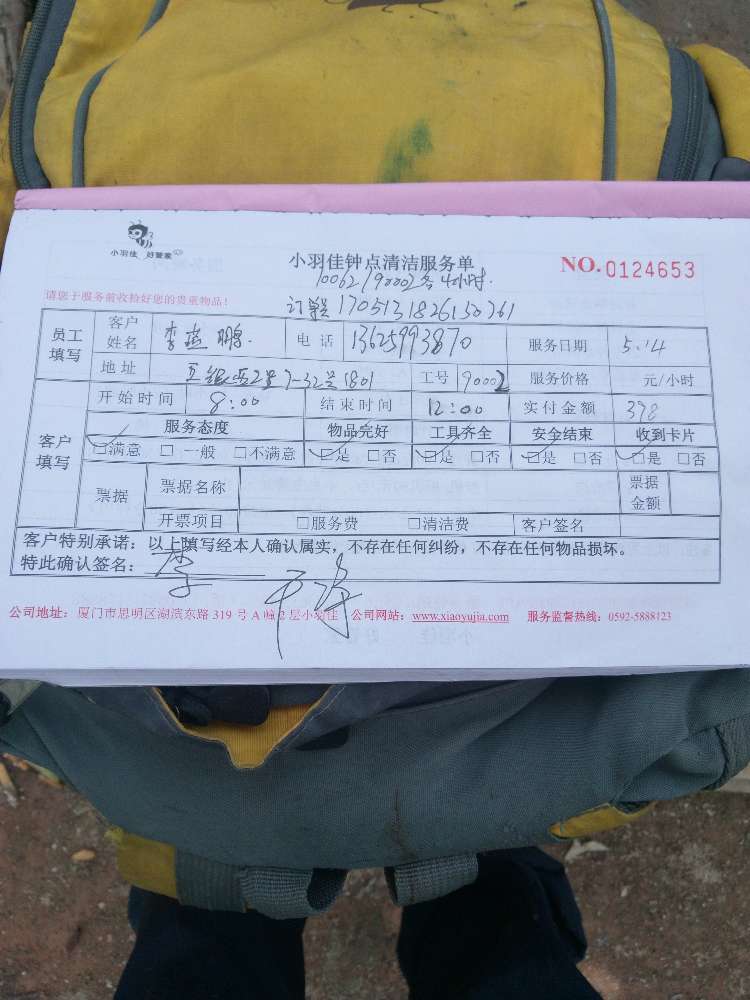 小羽佳 好管家
小羽佳钟点清洁服务单
NO. 0124653
10062/90002各4小时.
请您于服务前收捡好您的贵重物品!
订单 1705131826150361
员工填写 客户姓名 李燕鹏. 电话 13625993870 服务日期 5.14
地址 1801 工号 90002 服务价格 元/小时
客户填写 开始时间 8:00 结束时间 12:00 实付金额 378
服务态度 物品完好 工具齐全 安全结束 收到卡片
☑满意 □一般 □不满意 ☑是 □否 ☑是 □否 ☑是 □否 ☑是 □否
票据 票据名称 票据金额
开票项目 □服务费 □清洁费 客户签名
客户特别承诺:以上填写经本人确认属实,不存在任何纠纷,不存在任何物品损坏。
特此确认签名: 李
公司地址:厦门市思明区湖滨东路 319 号 A 幢 2 层小羽佳 公司网站:www.xiaoyujia.com 服务监督热线:0592-5888123